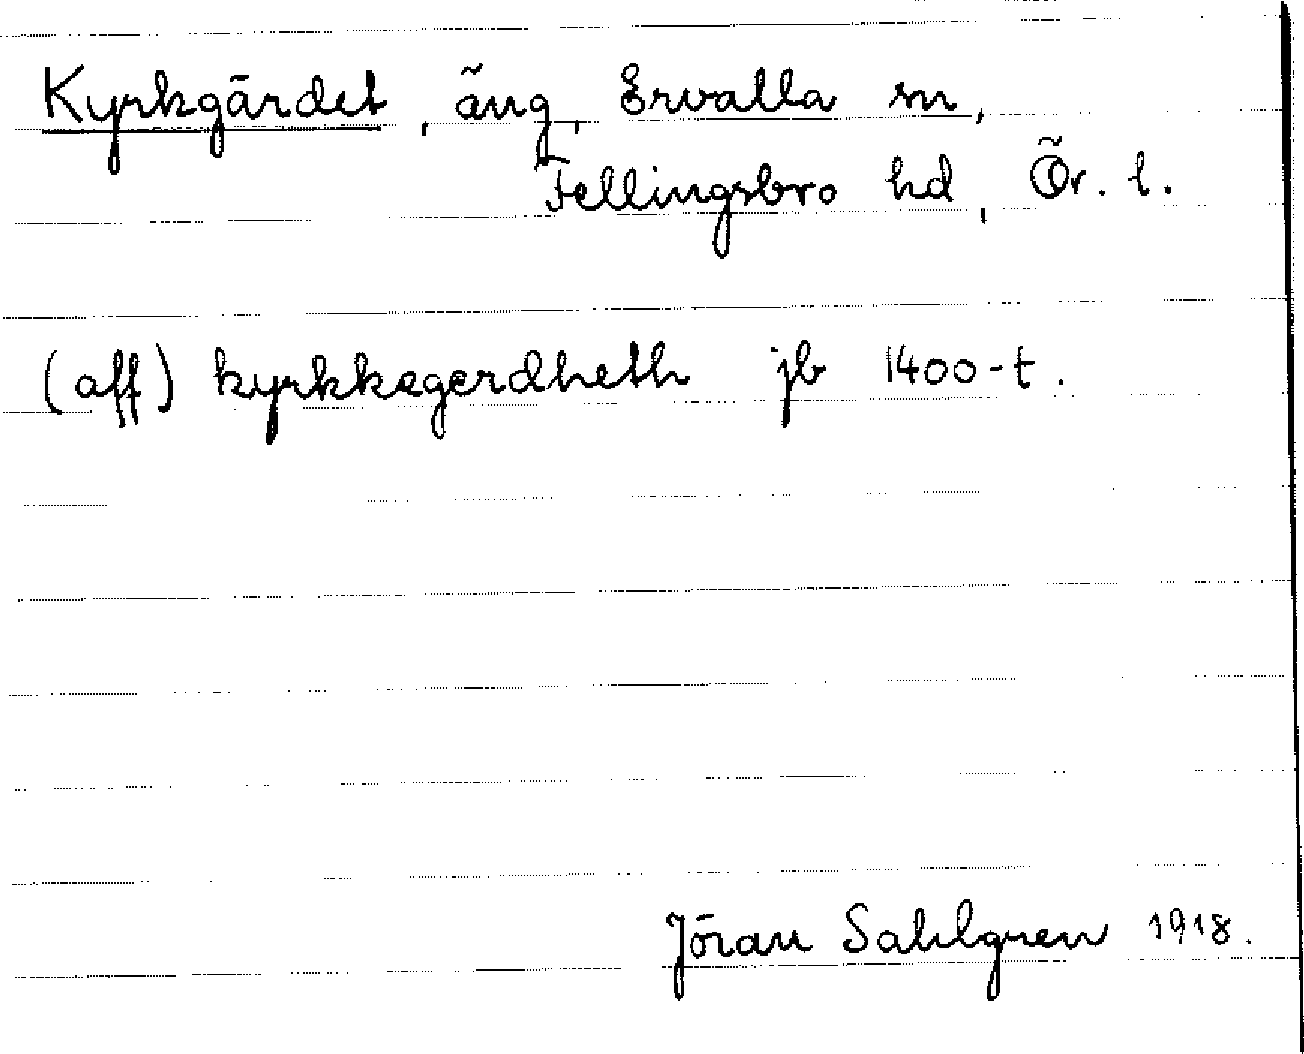 Kyrkgärdet, äng, Ervalla sn,
Fellingsbro hd, Ör. l.
(aff) kyrkkegerdheth jb 1400-t.
Jöran Sahlgren 1918.